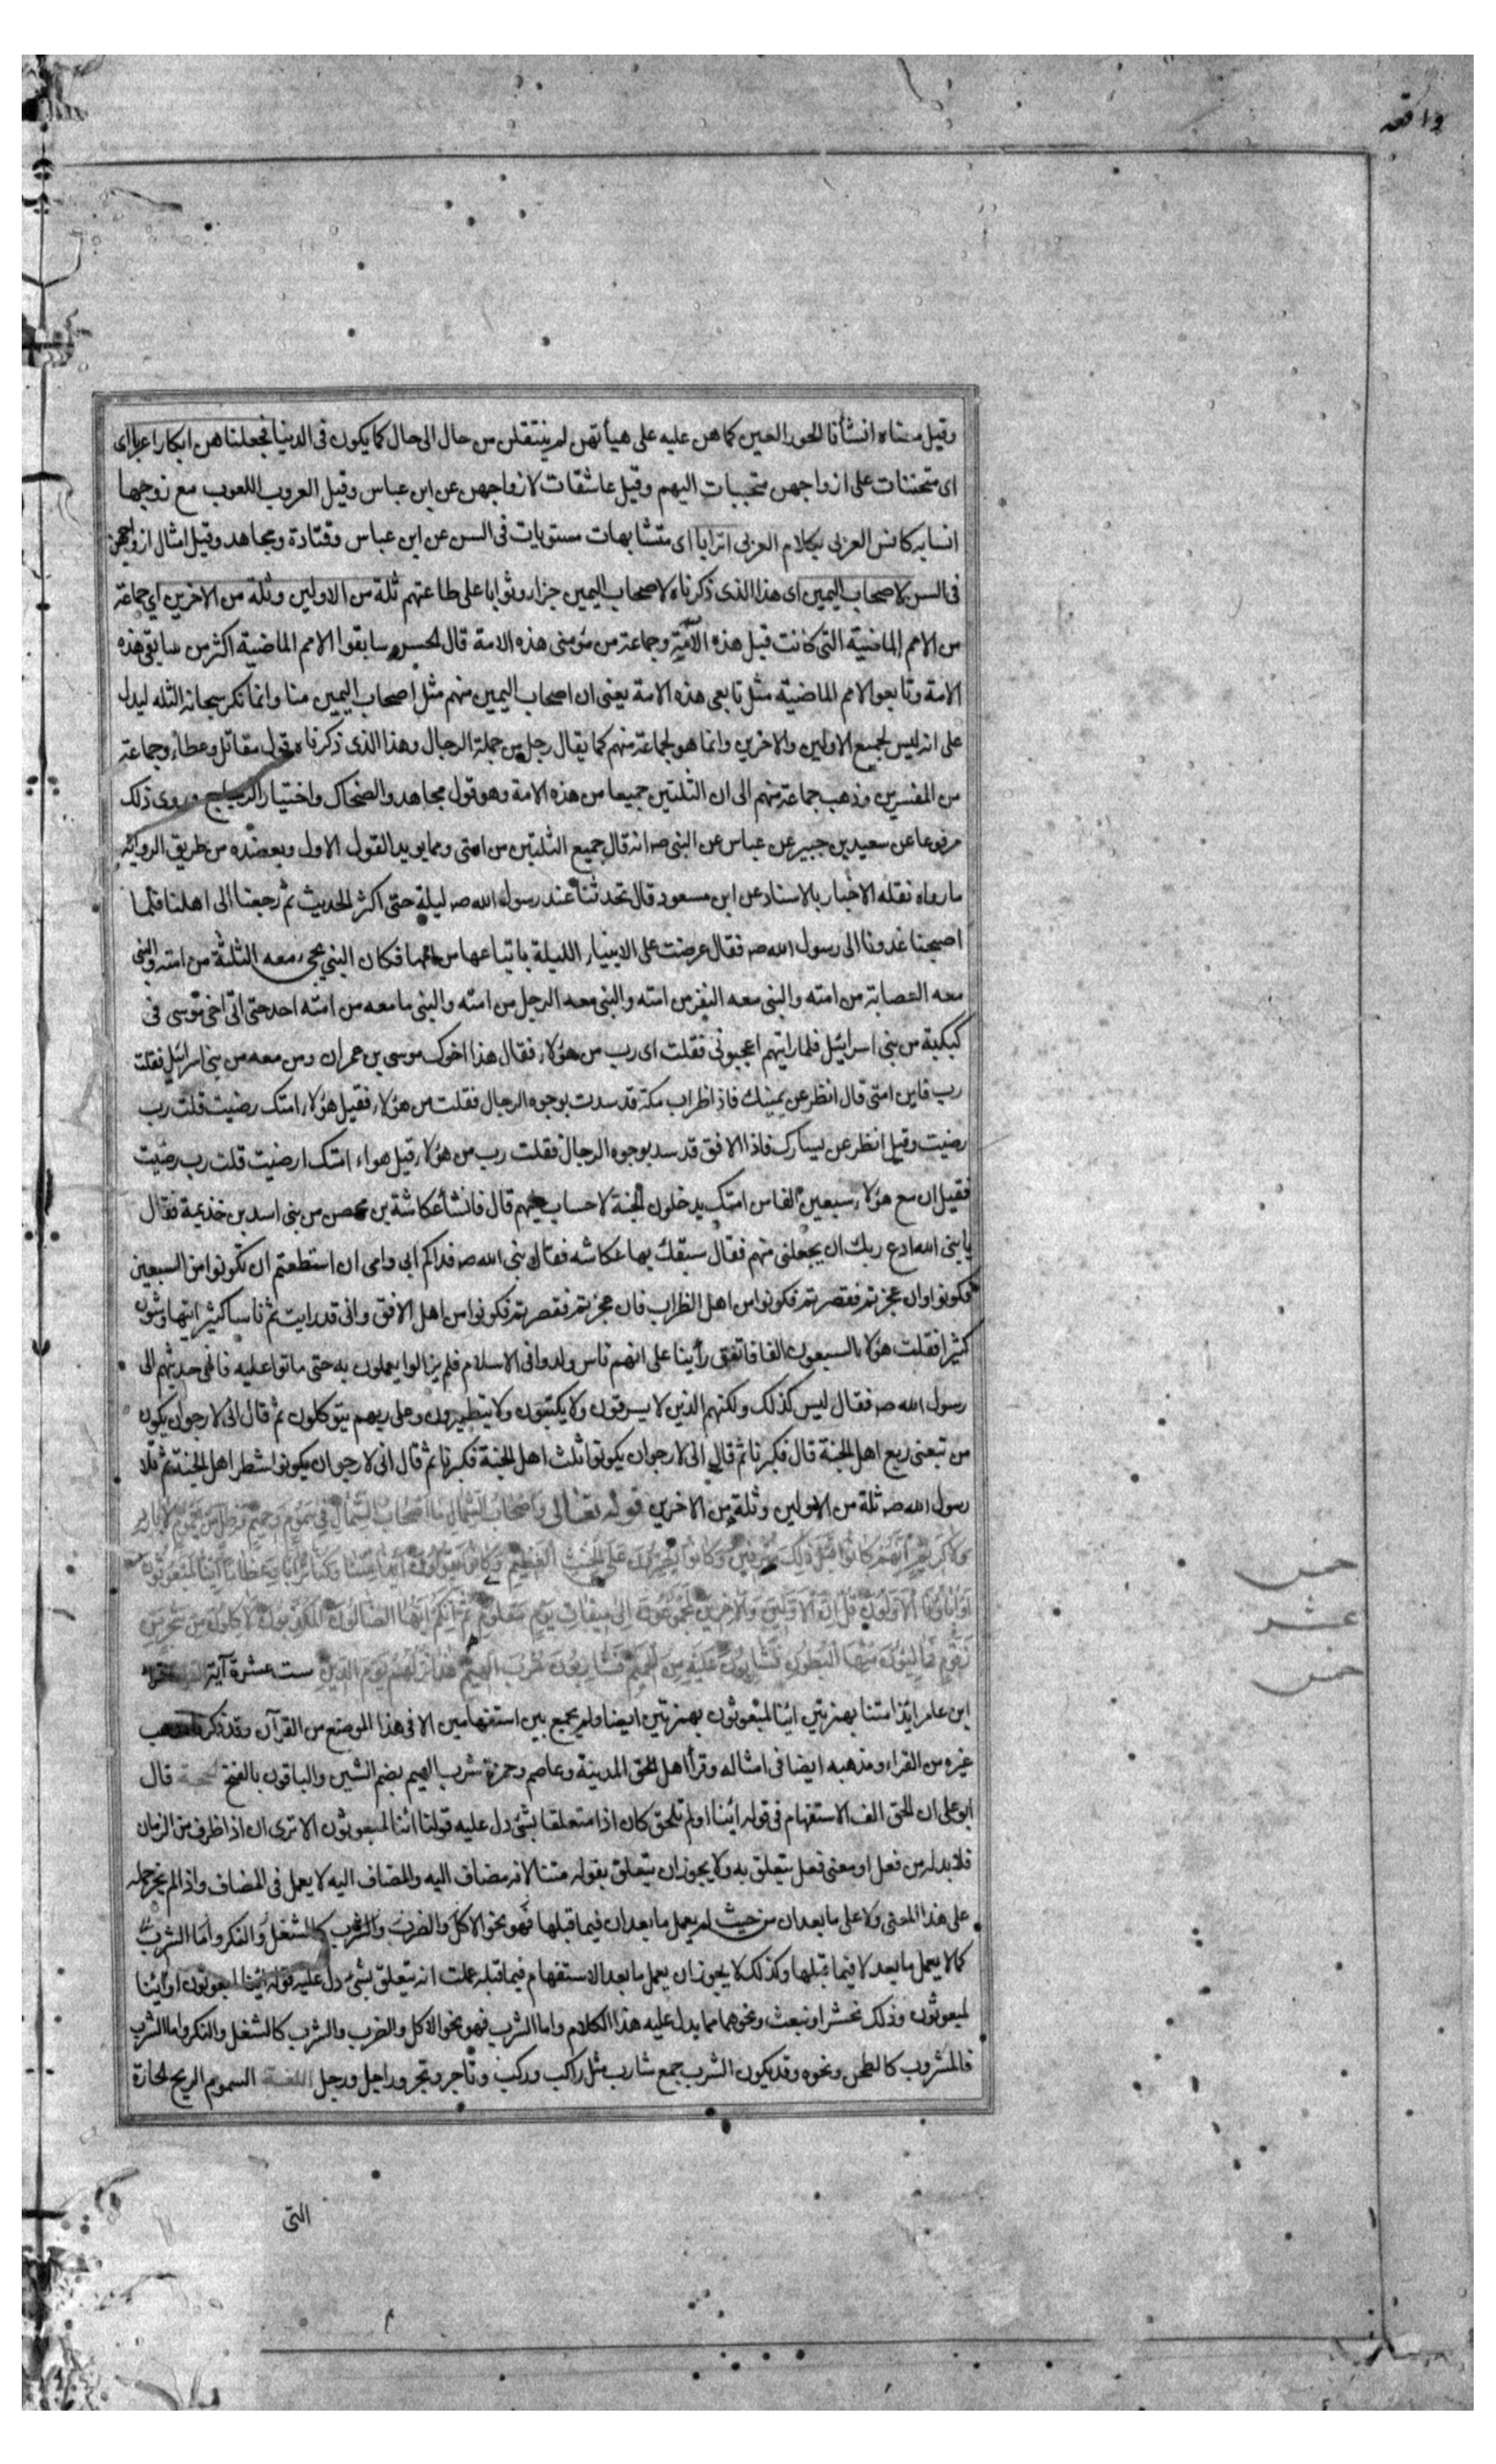 واقعه
وقيل معناه انشأنا الحور العين كما هن عليه على هيأتهن لم ينتقلن من حال الى حال كما يكون فى الدنيا فجعلناهن ابكارا عربا اى
اى متحننات على ازواجهن متحببات اليهم وقيل عاشقات لازواجهن عن ابن عباس وقيل العروب اللعوب مع زوجها
انسا به كانس العربى بكلام العربى اترابا اى متشابهات مستويات فى السن عن ابن عباس وقتادة ومجاهد وقيل امثال ازواجهن
فى السن لاصحاب اليمين اى هذا الذى ذكرناه لاصحاب اليمين جزاء وثوابا على طاعتهم ثلة من الاولين وثلة من الاخرين اى جماعة
من الامم الماضية التى كانت قبل هذه الامة وجماعة من مؤمنى هذه الامة قال الحسن سابقوا الامم الماضية اكثر من سابقى هذه
الامة وتابعو الامم الماضية مثل تابعى هذه الامة يعنى ان اصحاب اليمين منهم مثل اصحاب اليمين منا وانما نكر سبحانه الثلة ليدل
على انه ليس لجميع الاولين والاخرين وانما هو لجماعة منهم كما يقال رجل من جملة الرجال وهذا الذى ذكرناه قول مقاتل وعطاء وجماعة
من المفسرين وذهب جماعة منهم الى ان الثلتين جميعا من هذه الامة وهو قول مجاهد والضحاك واختيار الزجاج وروى ذلك
مرفوعا عن سعيد بن جبير عن عباس عن النبى صـ انه قال جميع الثلتين من امتى ومما يويد القول الاول ويعضده من طريق الرواية
ما رواه نقله الاخبار بالاسناد عن ابن مسعود قال تحدثنا عند رسول الله صـ ليلة حتى اكثر الحديث ثم رجعنا الى اهلنا فلما
اصبحنا غدونا الى رسول الله صـ فقال عرضت على الانبياء الليلة باتباعها من اممها فكان النبى يجىء معه الثلثة من امته والنبى
معه العصابة من امته والنبى معه النفر من امته والنبى معه الرجل من امته والنبى ما معه من امته احد حتى اتى اخى موسى فى
كبكبة من بنى اسرائيل فلما رايتهم اعجبونى فقلت اى رب من هؤلاء فقال هذا اخوك موسى بن عمران ومن معه من بنى اسرائيل فقلت
رب فاين امتى قال انظر عن يمينك فاذا ظراب مكة قد سدت بوجوه الرجال فقلت من هؤلاء فقيل هؤلاء امتك رضيت قلت رب
رضيت وقيل انظر عن يسارك فاذا الافق قد سد بوجوه الرجال فقلت رب من هؤلاء قيل هواء امتك ارضيت قلت رب رضيت
فقيل ان مع هؤلاء سبعين الفا من امتك يدخلون الجنة لا حساب عليهم قال فانشأ عكاشة بن محصن من بنى اسد بن خذيمة فقال
يا نبى الله ادع ربك ان يجعلنى منهم فقال سبقك بها عكاشه فقال نبى الله صـ فداكم ابى وامى ان استطعتم ان تكونوا من السبعين
فكونوا وان عجزتم فقصرتم فكونوا من اهل الظراب فان عجزتم فقصرتم فكونوا من اهل الافق وانى قد رايت ثم ناسا كثيرا يتهاوشون
كثيرا فقلت هؤلاء السبعون الفا فاتفق رأينا على انهم ناس ولدوا فى الاسلام فلم يزالوا يعملون به حتى ماتوا عليه فانهى حديثهم الى
رسول الله صـ فقال ليس كذلك ولكنهم الذين لا يسرقون ولا يكتبون ولا يتطيرون وعلى ربهم يتوكلون ثم قال انى لارجو ان يكون
من تبعنى ربع اهل الجنة قال فكبرنا ثم قال انى لارجو ان يكونوا ثلث اهل الجنة فكبرنا ثم قال انى لارجو ان يكونوا شطر اهل الجنة ثم تلا
رسول الله صـ ثلة من الاولين وثلة من الاخرين قوله تعالى واصحاب الشمال ما اصحاب الشمال فى سموم وحميم وظل من يحموم لا بارد
ولا كريم انهم كانوا قبل ذلك مترفين وكانوا يصرون على الحنث العظيم وكانوا يقولون ائذا متنا وكنا ترابا وعظاما ائنا لمبعوثون
اوآباؤنا الاولون قل ان الاولين والاخرين لمجموعون الى ميقات يوم معلوم ثم انكم ايها الضالون المكذبون لاكلون من شجر من
زقوم فمالئون منها البطون فشاربون عليه من الحميم فشاربون شرب الهيم هذا نزلهم يوم الدين ست عشرة آية
ابن عامر ائذا متنا بهمزتين ائنا لمبعوثون بهمزتين ايضا ولم يجمع بين استفهامين الا فى هذا الموضع من القرآن وقد ذكرنا مذهب
غيره من القراء ومذهبه ايضا فى امثاله وقرأ اهل المدينة وعاصم وحمزة شرب الهيم بضم الشين والباقون بالفتح الحجة قال
ابو على ان الحق الف الاستفهام فى قوله ائنا او لم تلحق كان اذا متعلقا بشئ دل عليه قولنا ائنا لمبعوثون الا ترى ان اذا ظرف من الزمان
فلا بد له من فعل او معنى فعل يتعلق به ولا يجوز ان يتعلق بقوله متنا لانه مضاف اليه والمضاف اليه لا يعمل فى المضاف واذا لم يجز حمله
على هذا المعنى ولا على ما بعد ان من حيث لم يعمل ما بعد ان فيما قبلها فهو نحو الاكل والضرب والشرب كالشغل والفكر واما الشرب
كما لا يعمل ما بعد لا فيما قبلها وكذلك لا يجوز ان يعمل ما بعد الاستفهام فيما قبله علمت انه يتعلق بشئ دل عليه قوله ائنا لمبعوثون اوائنا
لمبعوثون وذلك نحشر او نبعث ونحوهما مما يدل عليه هذا الكلام واما الشرب فهو نحو الاكل والضرب والشرب كالشغل والنكر واما الشرب
فالمشروب كالطحن ونحوه وقد يكون الشرب جمع شارب مثل راكب وركب وتاجر وتجر وراجل ورجل اللغة السموم الريح الحارة
خمس
عشر
خمس
التى